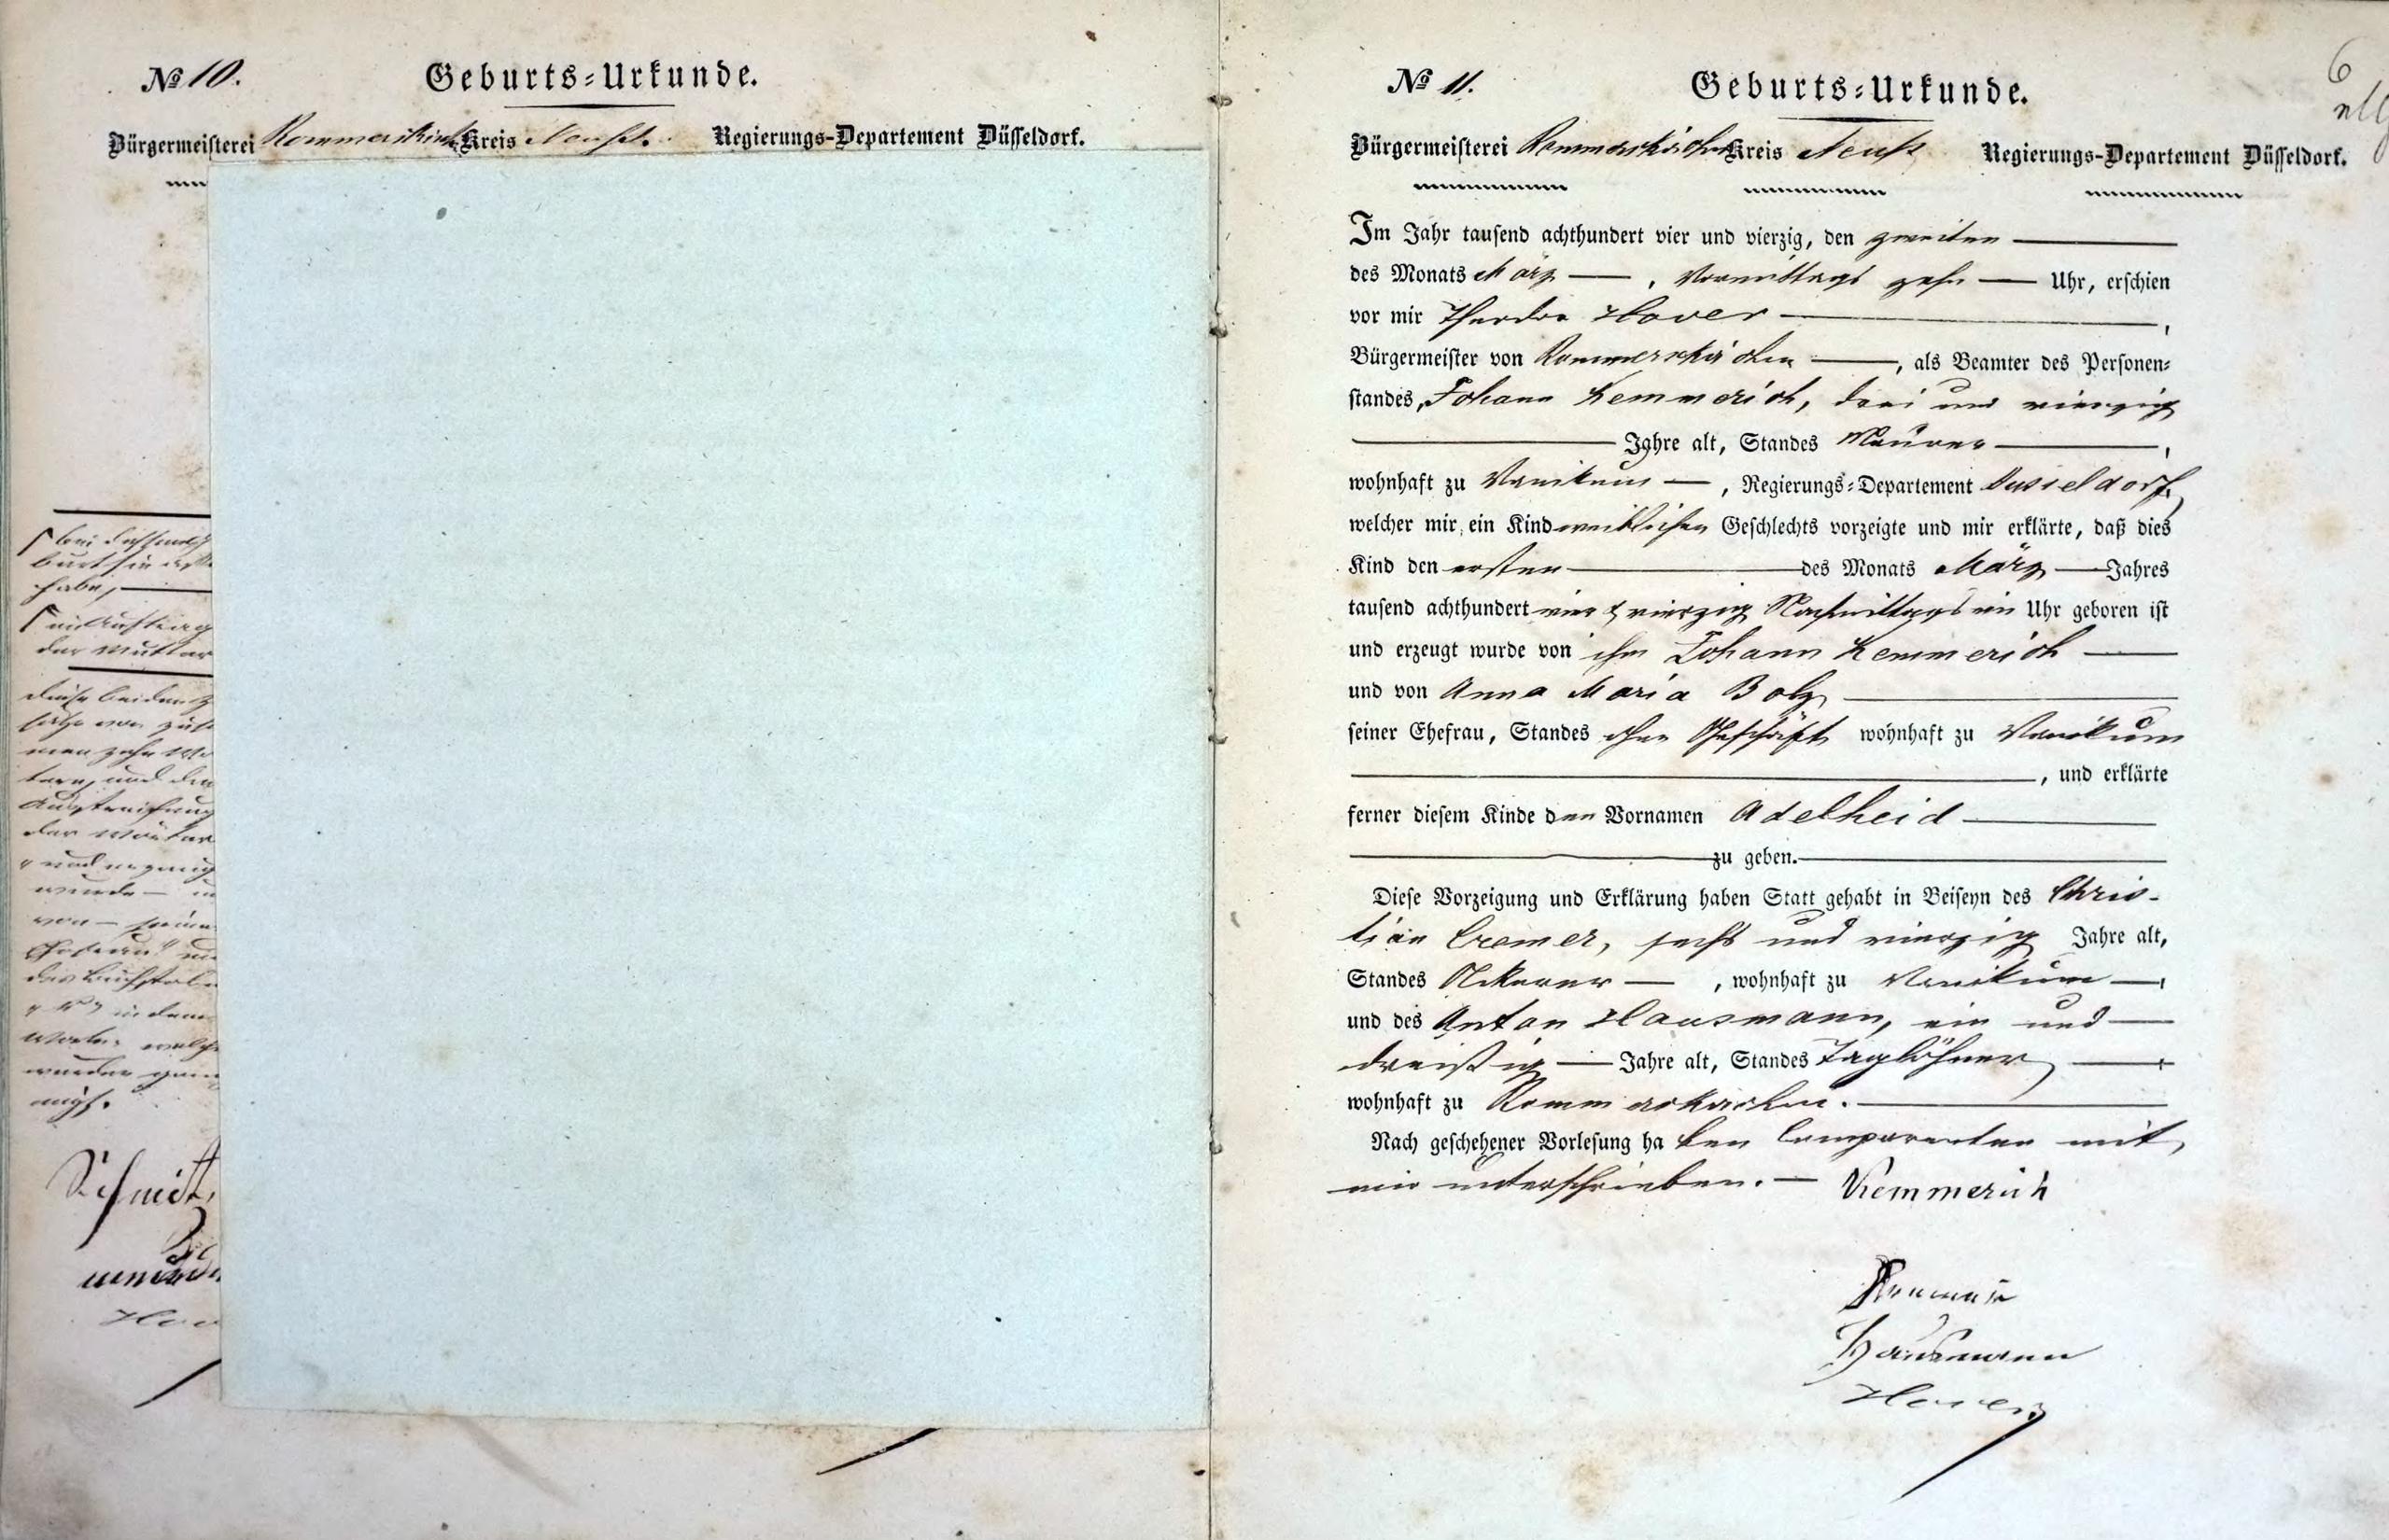 № 10.
Geburts-Urkunde.
Bürgermeisterei Rommerskirchen Kreis Neuß. Regierungs-Departement Düsseldorf.
habe,
der Mutter
diese beiden
zehn
und
der Wörter
wurde —
von — seiner
des Buchstaben
in dem
Worte
wurden
Schmitz
№ 11.
Geburts-Urkunde.
6
Bürgermeisterei Rommerskirchen Kreis Neuß Regierungs-Departement Düsseldorf.
Im Jahr tausend achthundert vier und vierzig, den zweiten
des Monats März, Vormittags zehn Uhr, erschien
vor mir Theodor Hover,
Bürgermeister von Rommerskirchen, als Beamter des Personen-
standes, Johann Kemmerich, drei und vierzig
Jahre alt, Standes Maurer,
wohnhaft zu Vanikum, Regierungs-Departement Düsseldorf,
welcher mir ein Kind weiblichen Geschlechts vorzeigte und mir erklärte, daß dies
Kind den ersten des Monats März Jahres
tausend achthundert vier & vierzig Nachmittags ein Uhr geboren ist
und erzeugt wurde von ihm Johann Kemmerich
und von Anna Maria Bolz
seiner Ehefrau, Standes ohne Geschäft wohnhaft zu Vanikum
, und erklärte
ferner diesem Kinde den Vornamen Adelheid
zu geben.
Diese Vorzeigung und Erklärung haben Statt gehabt in Beiseyn des Chris-
tian Cremer, sechs und vierzig Jahre alt,
Standes Ackerer, wohnhaft zu Vanikum,
und des Anton Hausmann, ein und
dreißig Jahre alt, Standes Taglöhner,
wohnhaft zu Rommerskirchen.
Nach geschehener Vorlesung haben Comparenten mit
mir unterschrieben. — Kemmerich
Hausmann
Hover